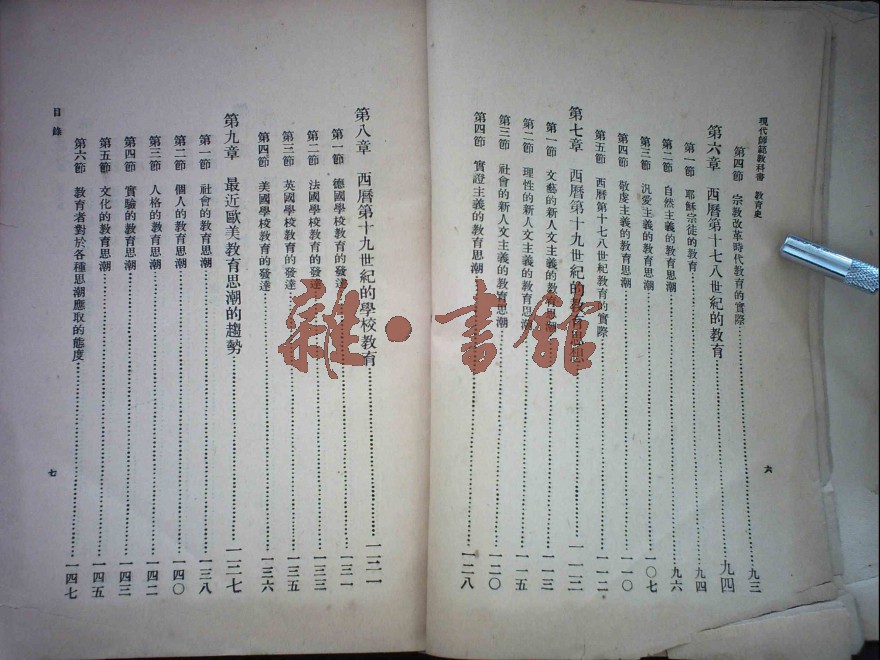 現代師範教科書 教育史
第四節 宗教改革時代教育的實際 九三
第六章 西曆第十七八世紀的教育 九四
第一節 耶穌宗徒的教育 九四
第二節 自然主義的教育思潮 九六
第三節 汎愛主義的教育思潮 一〇七
第四節 敬虔主義的教育思潮 一一〇
第五節 西曆第十七八世紀教育的實際 一一二
第七章 西曆第十九世紀的教育思潮 一一三
第一節 文藝的新人文主義的教育思潮 一一三
第二節 理性的新人文主義的教育思潮 一一五
第三節 社會的新人文主義的教育思潮 一二〇
第四節 實證主義的教育思潮 一二八
六
第八章 西曆第十九世紀的學校教育 一三一
第一節 德國學校教育的發達 一三一
第二節 法國學校教育的發達 一三三
第三節 英國學校教育的發達 一三五
第四節 美國學校教育的發達 一三六
第九章 最近歐美教育思潮的趨勢 一三七
第一節 社會的教育思潮 一三八
第二節 個人的教育思潮 一四〇
第三節 人格的教育思潮 一四二
第四節 實驗的教育思潮 一四三
第五節 文化的教育思潮 一四五
第六節 教育者對於各種思潮應取的態度 一四七
目錄
七
雜·書館